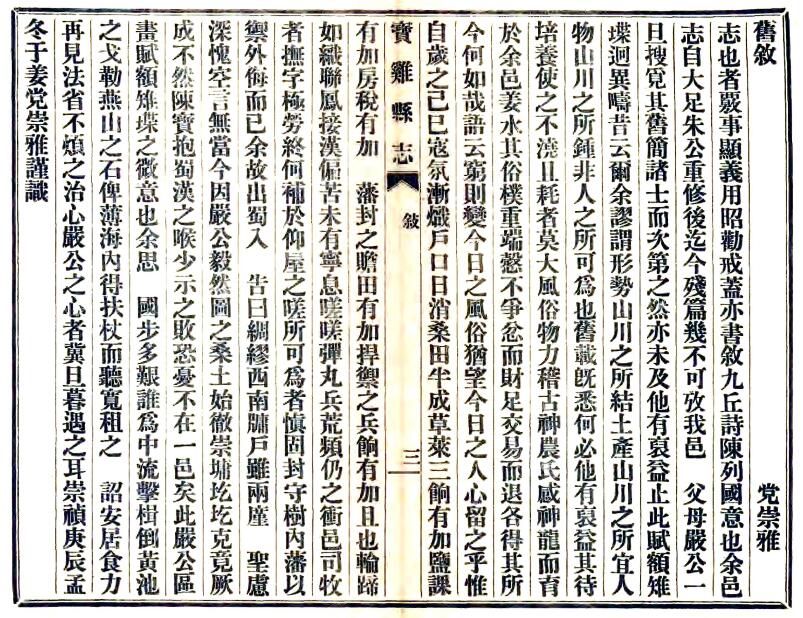 舊敘 党崇雅
志也者覈事顯義用昭勸戒蓋亦書敘九丘詩陳列國意也余邑
志自大足朱公重修後迄今殘篇幾不可攷我邑 父母嚴公一
旦搜覓其舊簡諸士而次第之然亦未及他有裒益止此賦額雉
堞迴異疇昔云爾余謬謂形勢山川之所結土產山川之所宜人
物山川之所鍾非人之所可為也舊載旣悉何必他有裒益其待
培養使之不澆且耗者莫大風俗物力稽古神農氏感神龍而育
於余邑姜水其俗樸重端慤不爭忿而財足交易而退各得其所
今何如哉語云窮則變今日之風俗猶望今日之人心留之乎惟
自歲之己巳寇氛漸熾戶口日消桑田半成草萊三餉有加鹽課
寶雞縣志 敘 三
有加房稅有加 藩封之贍田有加捍禦之兵餉有加且也輪蹄
如織聯鳳接漢偏苦未有寧息嗟嗟彈丸兵荒頻仍之衝邑司牧
者撫字極勞終何補於仰屋之嗟所可為者愼固封守樹內藩以
禦外侮而已余故出蜀入 告曰綢繆西南牖戶雖兩廑 聖慮
深愧空言無當今因嚴公毅然圖之桑土始徹崇墉圪圪克竟厥
成不然陳寶抱蜀漢之喉少示之敗恐憂不在一邑矣此嚴公區
畫賦額雉堞之微意也余思 國步多艱誰為中流擊楫倒黃池
之戈勒燕山之石俾薄海內得扶杖而聽寬租之 詔安居食力
再見法省不煩之治心嚴公之心者冀旦暮遇之耳崇禎庚辰孟
冬于姜党崇雅謹識